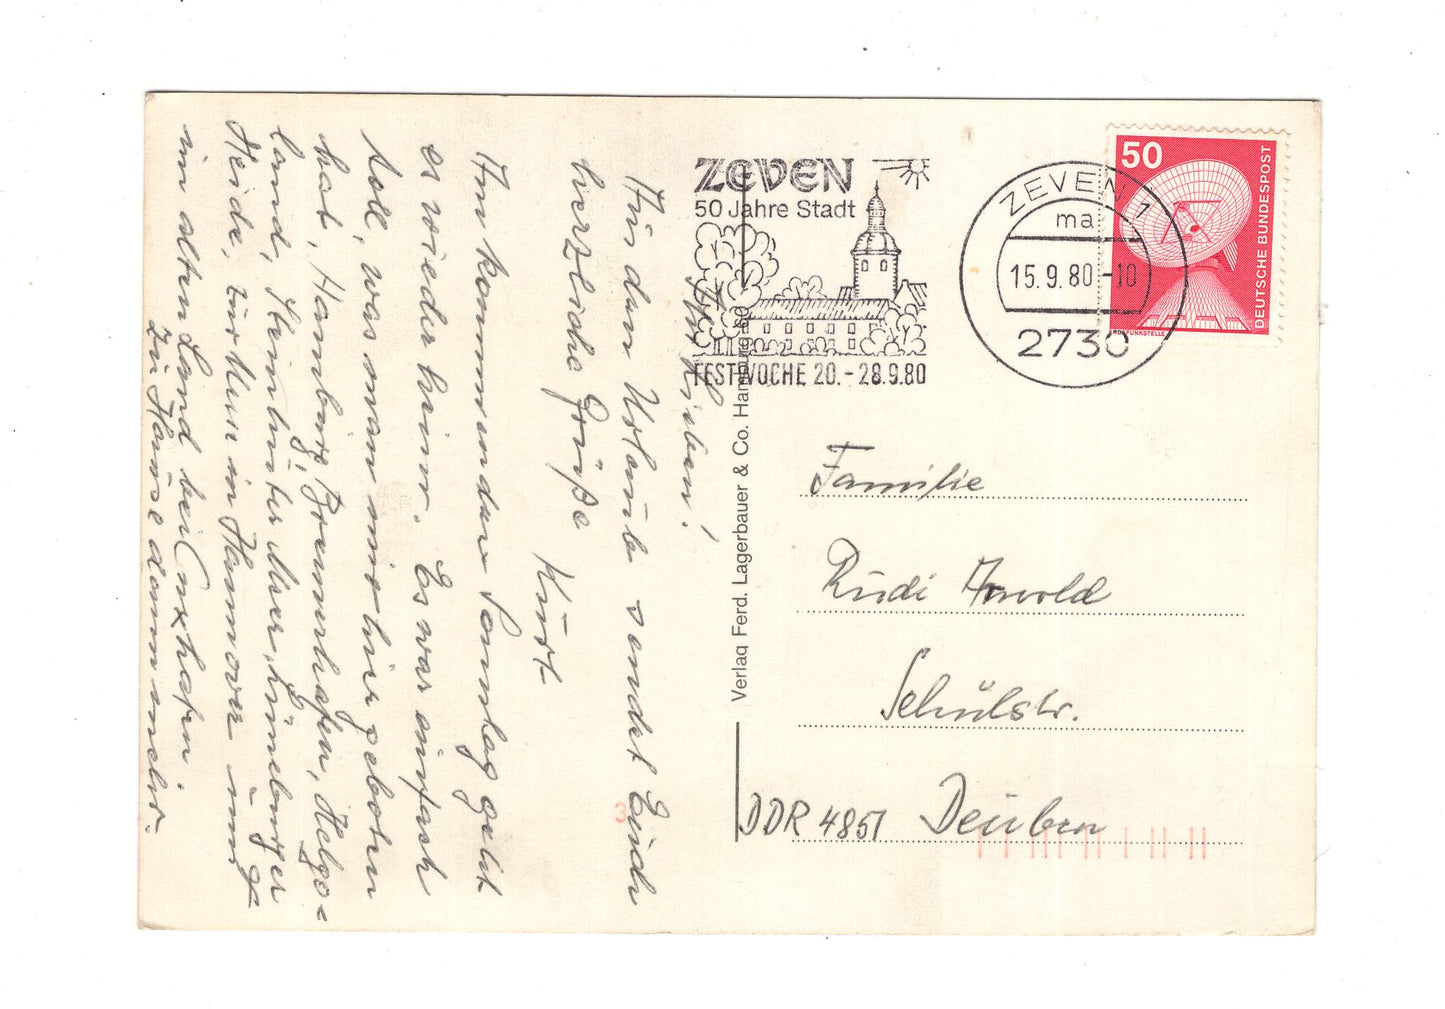 Ihr Lieben!
Aus dem Urlaub sendet Euch
herzliche Grüße
Kurt
Am kommenden Samstag geht
es wieder heim. Es war einfach
toll, was man mir hier geboten
hat, Hamburg, Bremerhafen, Helgo=
land, Steinhuder Meer, Lüneburger
Heide, zur Messe in Hannover
im alten Land bei Cuxhafen.
Zu Hause dann mehr.
ZEVEN
50 Jahre Stadt
FESTWOCHE 20.-28.9.80
ZEVEN 1
ma
15.9.80-10
2730
50
DEUTSCHE BUNDESPOST
ERDEFUNKSTELLE
Verlag Ferd. Lagerbauer & Co. Hamburg 50
Familie
Rudi Arnold
Schulstr.
DDR 4851 Deuben
3